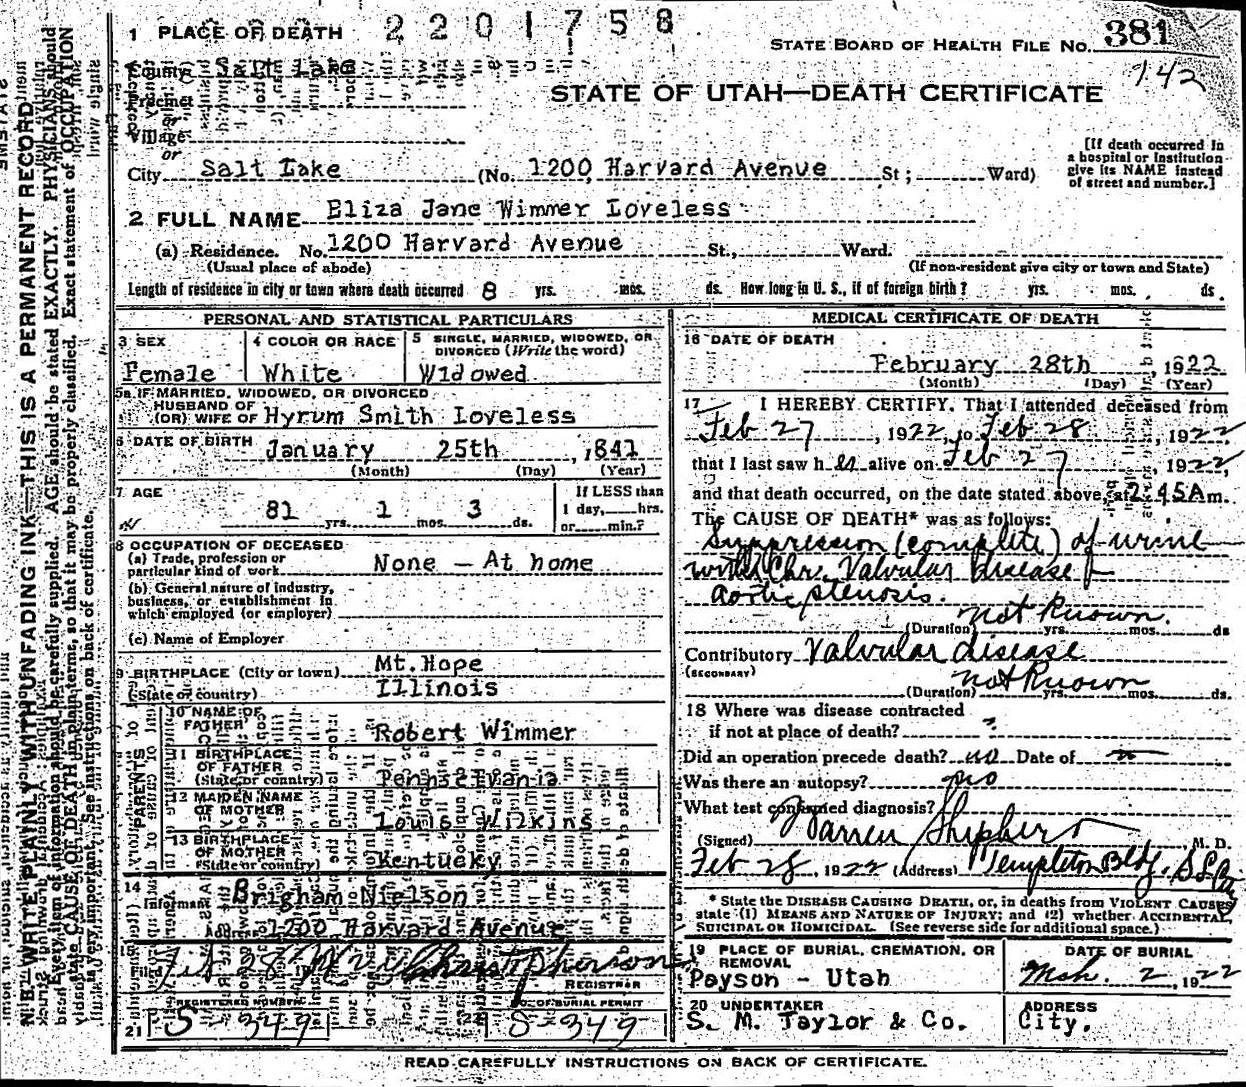 1 PLACE OF DEATH 2201758
STATE BOARD OF HEALTH FILE No. 381
142
County Salt Lake
Precinct
or
Village
or
STATE OF UTAH—DEATH CERTIFICATE
[If death occurred in
a hospital or institution
give its NAME instead
of street and number.]
City Salt Lake (No. 1200 Harvard Avenue St; Ward)
2 FULL NAME Eliza Jane Wimmer Loveless
(a) Residence. No. 1200 Harvard Avenue St., Ward.
(Usual place of abode) (If non-resident give city or town and State)
Length of residence in city or town where death occurred 8 yrs. mos. ds. How long in U. S., if of foreign birth? yrs. mos. ds.
PERSONAL AND STATISTICAL PARTICULARS
3 SEX 4 COLOR OR RACE 5 SINGLE, MARRIED, WIDOWED, OR
DIVORCED (Write the word)
Female White Widowed
5a IF MARRIED, WIDOWED, OR DIVORCED
HUSBAND OF
(OR) WIFE OF Hyrum Smith Loveless
6 DATE OF BIRTH January 25th, 1841
(Month) (Day) (Year)
7 AGE If LESS than
81 yrs. 1 mos. 3 ds. 1 day, hrs.
or min.?
8 OCCUPATION OF DECEASED
(a) Trade, profession or
particular kind of work None - At home
(b) General nature of industry,
business, or establishment in
which employed (or employer)
(c) Name of Employer
9 BIRTHPLACE (City or town) Mt. Hope
(State or country) Illinois
PARENTS
10 NAME OF
FATHER Robert Wimmer
11 BIRTHPLACE
OF FATHER
(State or country) Pennselvania
12 MAIDEN NAME
OF MOTHER Wilkins
13 BIRTHPLACE
OF MOTHER
(State or country) Kentucky
14
Informant Brigham Nielson
Address 1200 Harvard Avenue
15
Filed Feb 28 Christopherson
REGISTRAR
REGISTERED NUMBER No. OF BURIAL PERMIT
21 S-349 S-349
MEDICAL CERTIFICATE OF DEATH
16 DATE OF DEATH
February 28th, 1922
(Month) (Day) (Year)
17 I HEREBY CERTIFY, That I attended deceased from
Feb 27, 1922, to Feb 28, 1922,
that I last saw her alive on Feb 27, 1922,
and that death occurred, on the date stated above, at 2:45A m.
The CAUSE OF DEATH* was as follows:
Suppression (complete) of urine
with Chr. Valvular disease
aortic stenosis.
not Known.
(Duration) yrs. mos. ds
Contributory Valvular disease
(SECONDARY) not Known
(Duration) yrs. mos. ds.
18 Where was disease contracted
if not at place of death? ?
Did an operation precede death? no Date of
Was there an autopsy? no
What test confirmed diagnosis?
(Signed) Warren Shepherd M. D.
Feb 28, 1922 (Address) Templeton Bldg.
* State the DISEASE CAUSING DEATH, or, in deaths from VIOLENT CAUSES
state (1) MEANS AND NATURE OF INJURY; and (2) whether ACCIDENTAL,
SUICIDAL OR HOMICIDAL. (See reverse side for additional space.)
19 PLACE OF BURIAL, CREMATION, OR
REMOVAL
Payson - Utah
DATE OF BURIAL
Mch. 2, 1922
20 UNDERTAKER
S. M. Taylor & Co.
ADDRESS
City.
READ CAREFULLY INSTRUCTIONS ON BACK OF CERTIFICATE.
N. B.—WRITE PLAINLY WITH UNFADING INK—THIS IS A PERMANENT RECORD
Every item of information should be carefully supplied. AGE should be stated EXACTLY. PHYSICIANS should
state CAUSE OF DEATH in plain terms, so that it may be properly classified. Exact statement of OCCUPATION
is very important. See instructions on back of certificate.